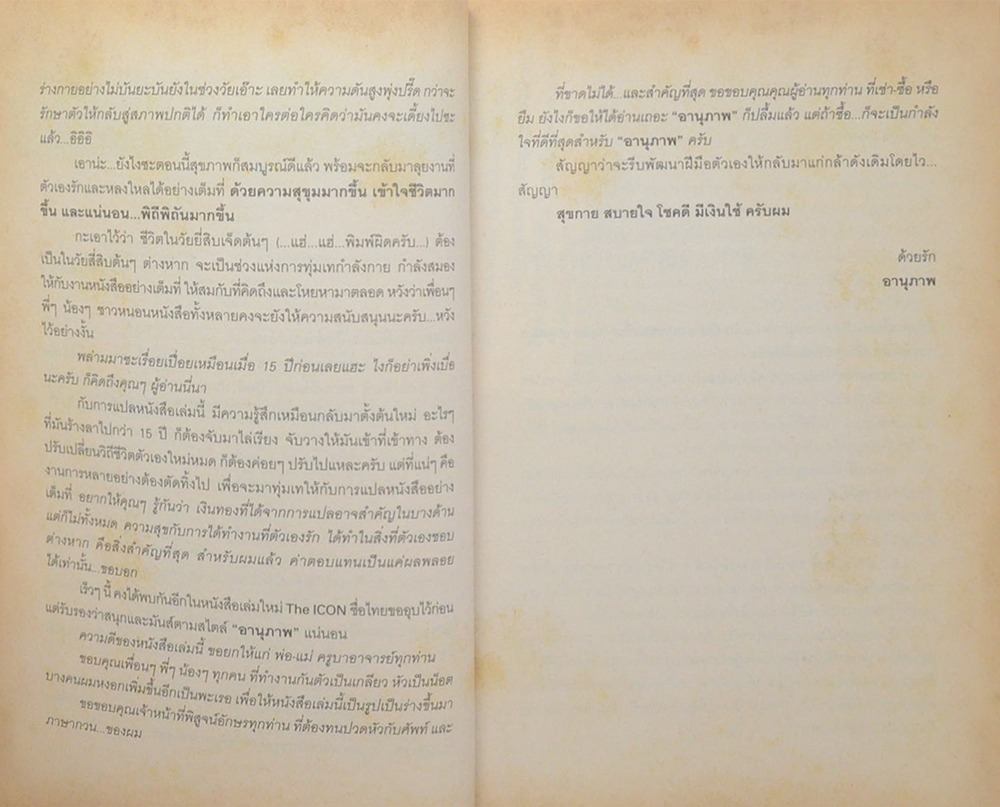 ร่างกายอย่างไม่บันยะบันยังในช่วงวัยเอ๊าะ เลยทำให้ความดันสูงพุ่งปรี๊ด กว่าจะ
รักษาตัวให้กลับสู่สภาพปกติได้ ก็ทำเอาใครต่อใครคิดว่ามันคงจะเดี้ยงไปซะ
แล้ว...อิอิอิ
เอาน่ะ...ยังไงซะตอนนี้สุขภาพก็สมบูรณ์ดีแล้ว พร้อมจะกลับมาลุยงานที่
ตัวเองรักและหลงใหลได้อย่างเต็มที่ ด้วยความสุขุมมากขึ้น เข้าใจชีวิตมาก
ขึ้น และแน่นอน...พิถีพิถันมากขึ้น
กะเอาไว้ว่า ชีวิตในวัยยี่สิบเจ็ดต้นๆ (...แฮ่...แฮ่...พิมพ์ผิดครับ...) ต้อง
เป็นในวัยสี่สิบต้นๆ ต่างหาก จะเป็นช่วงแห่งการทุ่มเทกำลังกาย กำลังสมอง
ให้กับงานหนังสืออย่างเต็มที่ ให้สมกับที่คิดถึงและโหยหามาตลอด หวังว่าเพื่อนๆ
พี่ๆ น้องๆ ชาวหนอนหนังสือทั้งหลายคงจะยังให้ความสนับสนุนนะครับ...หวัง
ไว้อย่างงั้น
พล่ามมาซะเรื่อยเปื่อยเหมือนเมื่อ 15 ปีก่อนเลยแฮะ ไงก็อย่าเพิ่งเบื่อ
นะครับ ก็คิดถึงคุณๆ ผู้อ่านนี่นา
กับการแปลหนังสือเล่มนี้ มีความรู้สึกเหมือนกลับมาตั้งต้นใหม่ อะไรๆ
ที่มันร้างลาไปกว่า 15 ปี ก็ต้องจับมาไล่เรียง จับวางให้มันเข้าที่เข้าทาง ต้อง
ปรับเปลี่ยนวิถีชีวิตตัวเองใหม่หมด ก็ต้องค่อยๆ ปรับไปแหละครับ แต่ที่แน่ๆ คือ
งานการหลายอย่างต้องตัดทิ้งไป เพื่อจะมาทุ่มเทให้กับการแปลหนังสืออย่าง
เต็มที่ อยากให้คุณๆ รู้กันว่า เงินทองที่ได้จากการแปลอาจสำคัญในบางด้าน
แต่ก็ไม่ทั้งหมด ความสุขกับการได้ทำงานที่ตัวเองรัก ได้ทำในสิ่งที่ตัวเองชอบ
ต่างหาก คือสิ่งสำคัญที่สุด สำหรับผมแล้ว ค่าตอบแทนเป็นแค่ผลพลอย
ได้เท่านั้น...ขอบอก
เร็วๆ นี้ คงได้พบกันอีกในหนังสือเล่มใหม่ The ICON ชื่อไทยขออุบไว้ก่อน
แต่รับรองว่าสนุกและมันส์ตามสไตล์ “อานุภาพ” แน่นอน
ความดีของหนังสือเล่มนี้ ขอยกให้แก่ พ่อ-แม่ ครูบาอาจารย์ทุกท่าน
ขอบคุณเพื่อนๆ พี่ๆ น้องๆ ทุกคน ที่ทำงานกันตัวเป็นเกลียว หัวเป็นน็อต
บางคนผมหงอกเพิ่มขึ้นอีกเป็นพะเรอ เพื่อให้หนังสือเล่มนี้เป็นรูปเป็นร่างขึ้นมา
ขอขอบคุณเจ้าหน้าที่พิสูจน์อักษรทุกท่าน ที่ต้องทนปวดหัวกับศัพท์ และ
ภาษากวน...ของผม
ที่ขาดไม่ได้...และสำคัญที่สุด ขอขอบคุณคุณผู้อ่านทุกท่าน ที่เช่า-ซื้อ หรือ
ยืม ยังไงก็ขอให้ได้อ่านเถอะ “อานุภาพ” ก็ปลื้มแล้ว แต่ถ้าซื้อ...ก็จะเป็นกำลัง
ใจที่ดีที่สุดสำหรับ “อานุภาพ” ครับ
สัญญาว่าจะรีบพัฒนาฝีมือตัวเองให้กลับมาแก่กล้าดังเดิมโดยไว...
สัญญา
สุขกาย สบายใจ โชคดี มีเงินใช้ ครับผม
ด้วยรัก
อานุภาพ